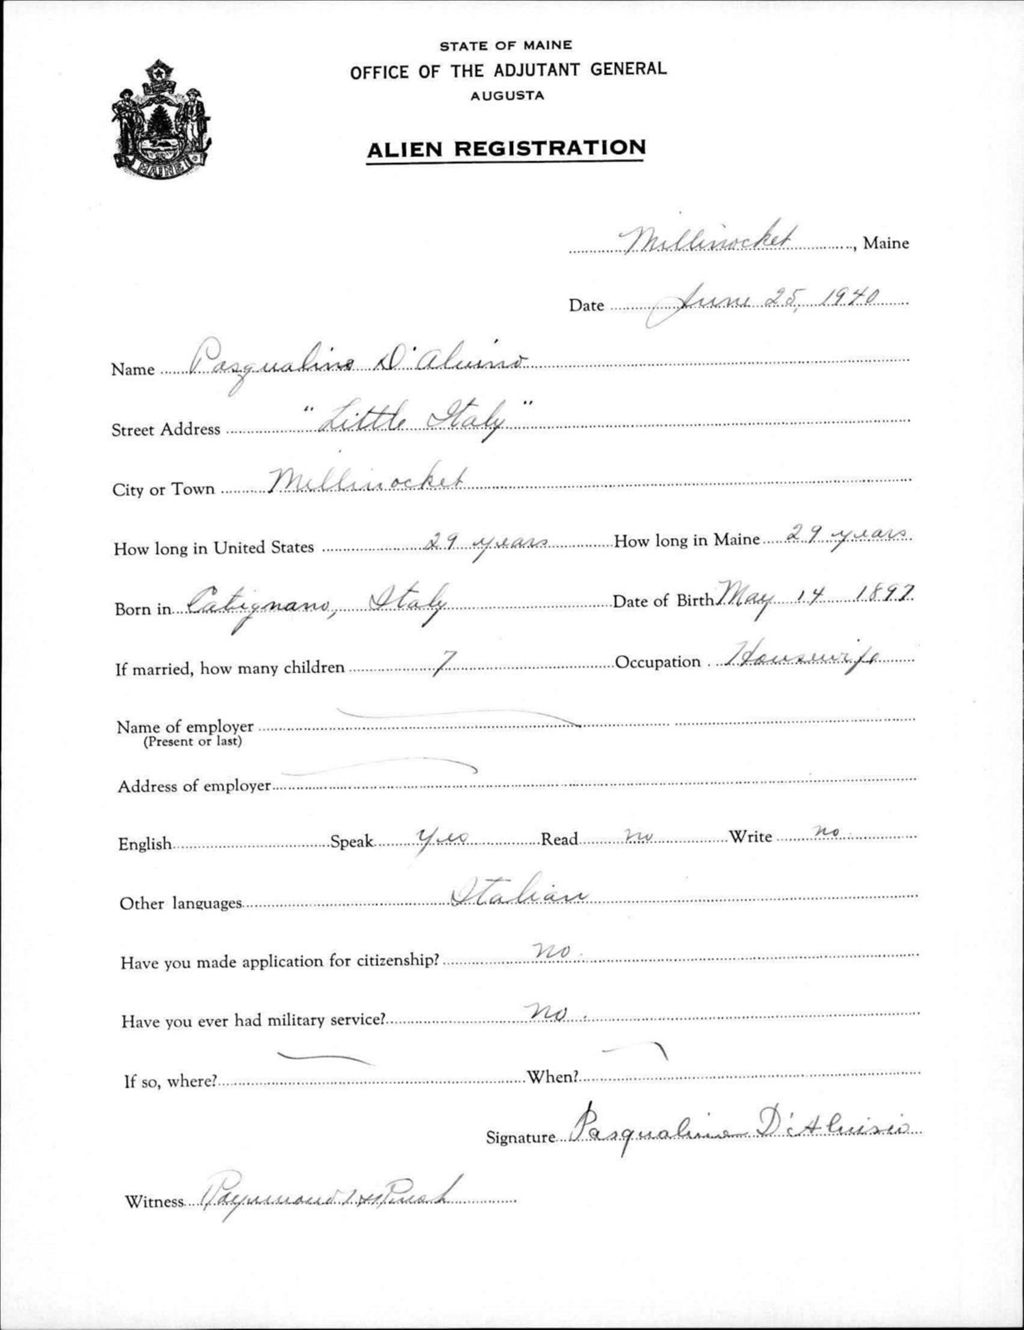 STATE OF MAINE
OFFICE OF THE ADJUTANT GENERAL
AUGUSTA
ALIEN REGISTRATION
MAINE
Millinocket, Maine
Date June 25, 1940
Name Pasqualino D'Aluino
Street Address "Little Italy"
City or Town Millinocket
How long in United States 29 years How long in Maine 29 years
Born in Catignano, Italy Date of Birth May 14 1897
If married, how many children 7 Occupation Housewife
Name of employer
(Present or last)
Address of employer
English Speak Yes Read no Write no
Other languages Italian
Have you made application for citizenship? no.
Have you ever had military service? no.
If so, where? When?
Signature Pasqualina D'Aluisio
Witness Raymond H Rush